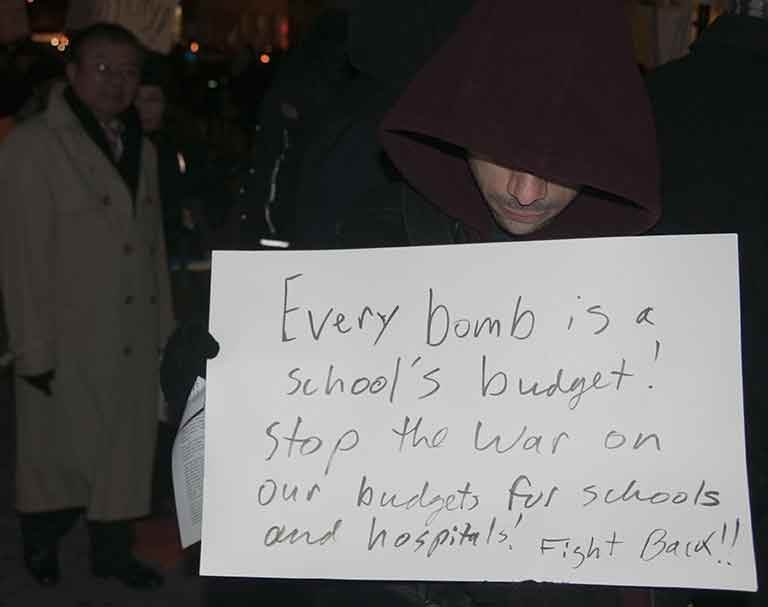 Every bomb is a
school's budget!
Stop the War on
our budgets for schools
and hospitals! Fight Back!!